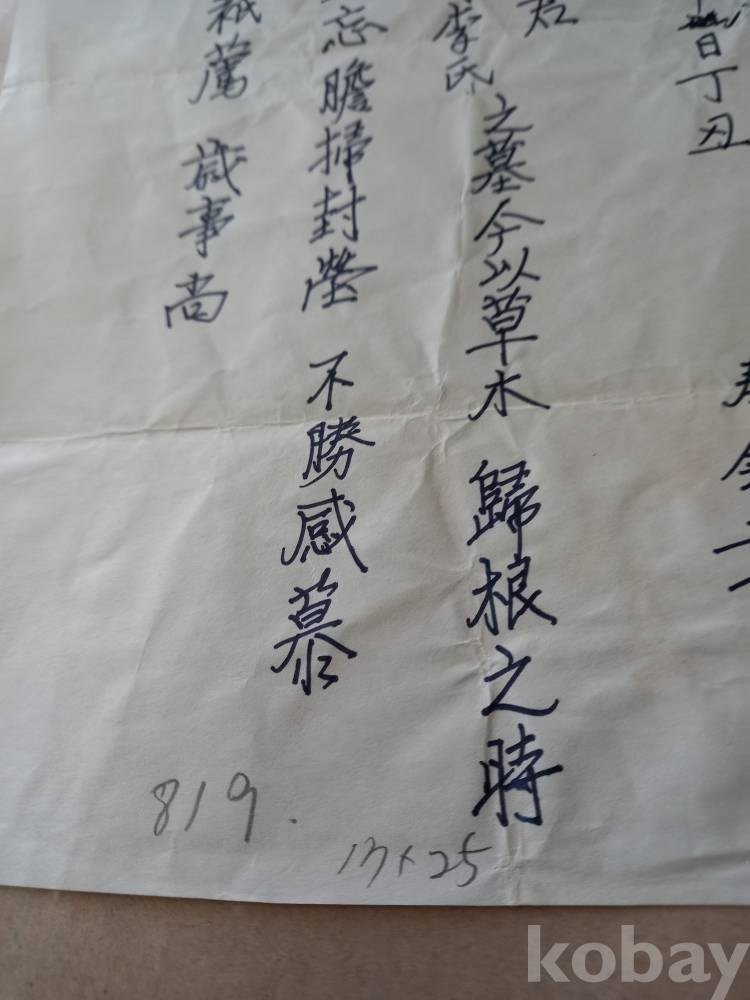 日丁丑
君
李氏
之墓今以草木 歸根之時
忘瞻掃封塋 不勝感慕
薦 歲事尚
819.
13×25
kobay